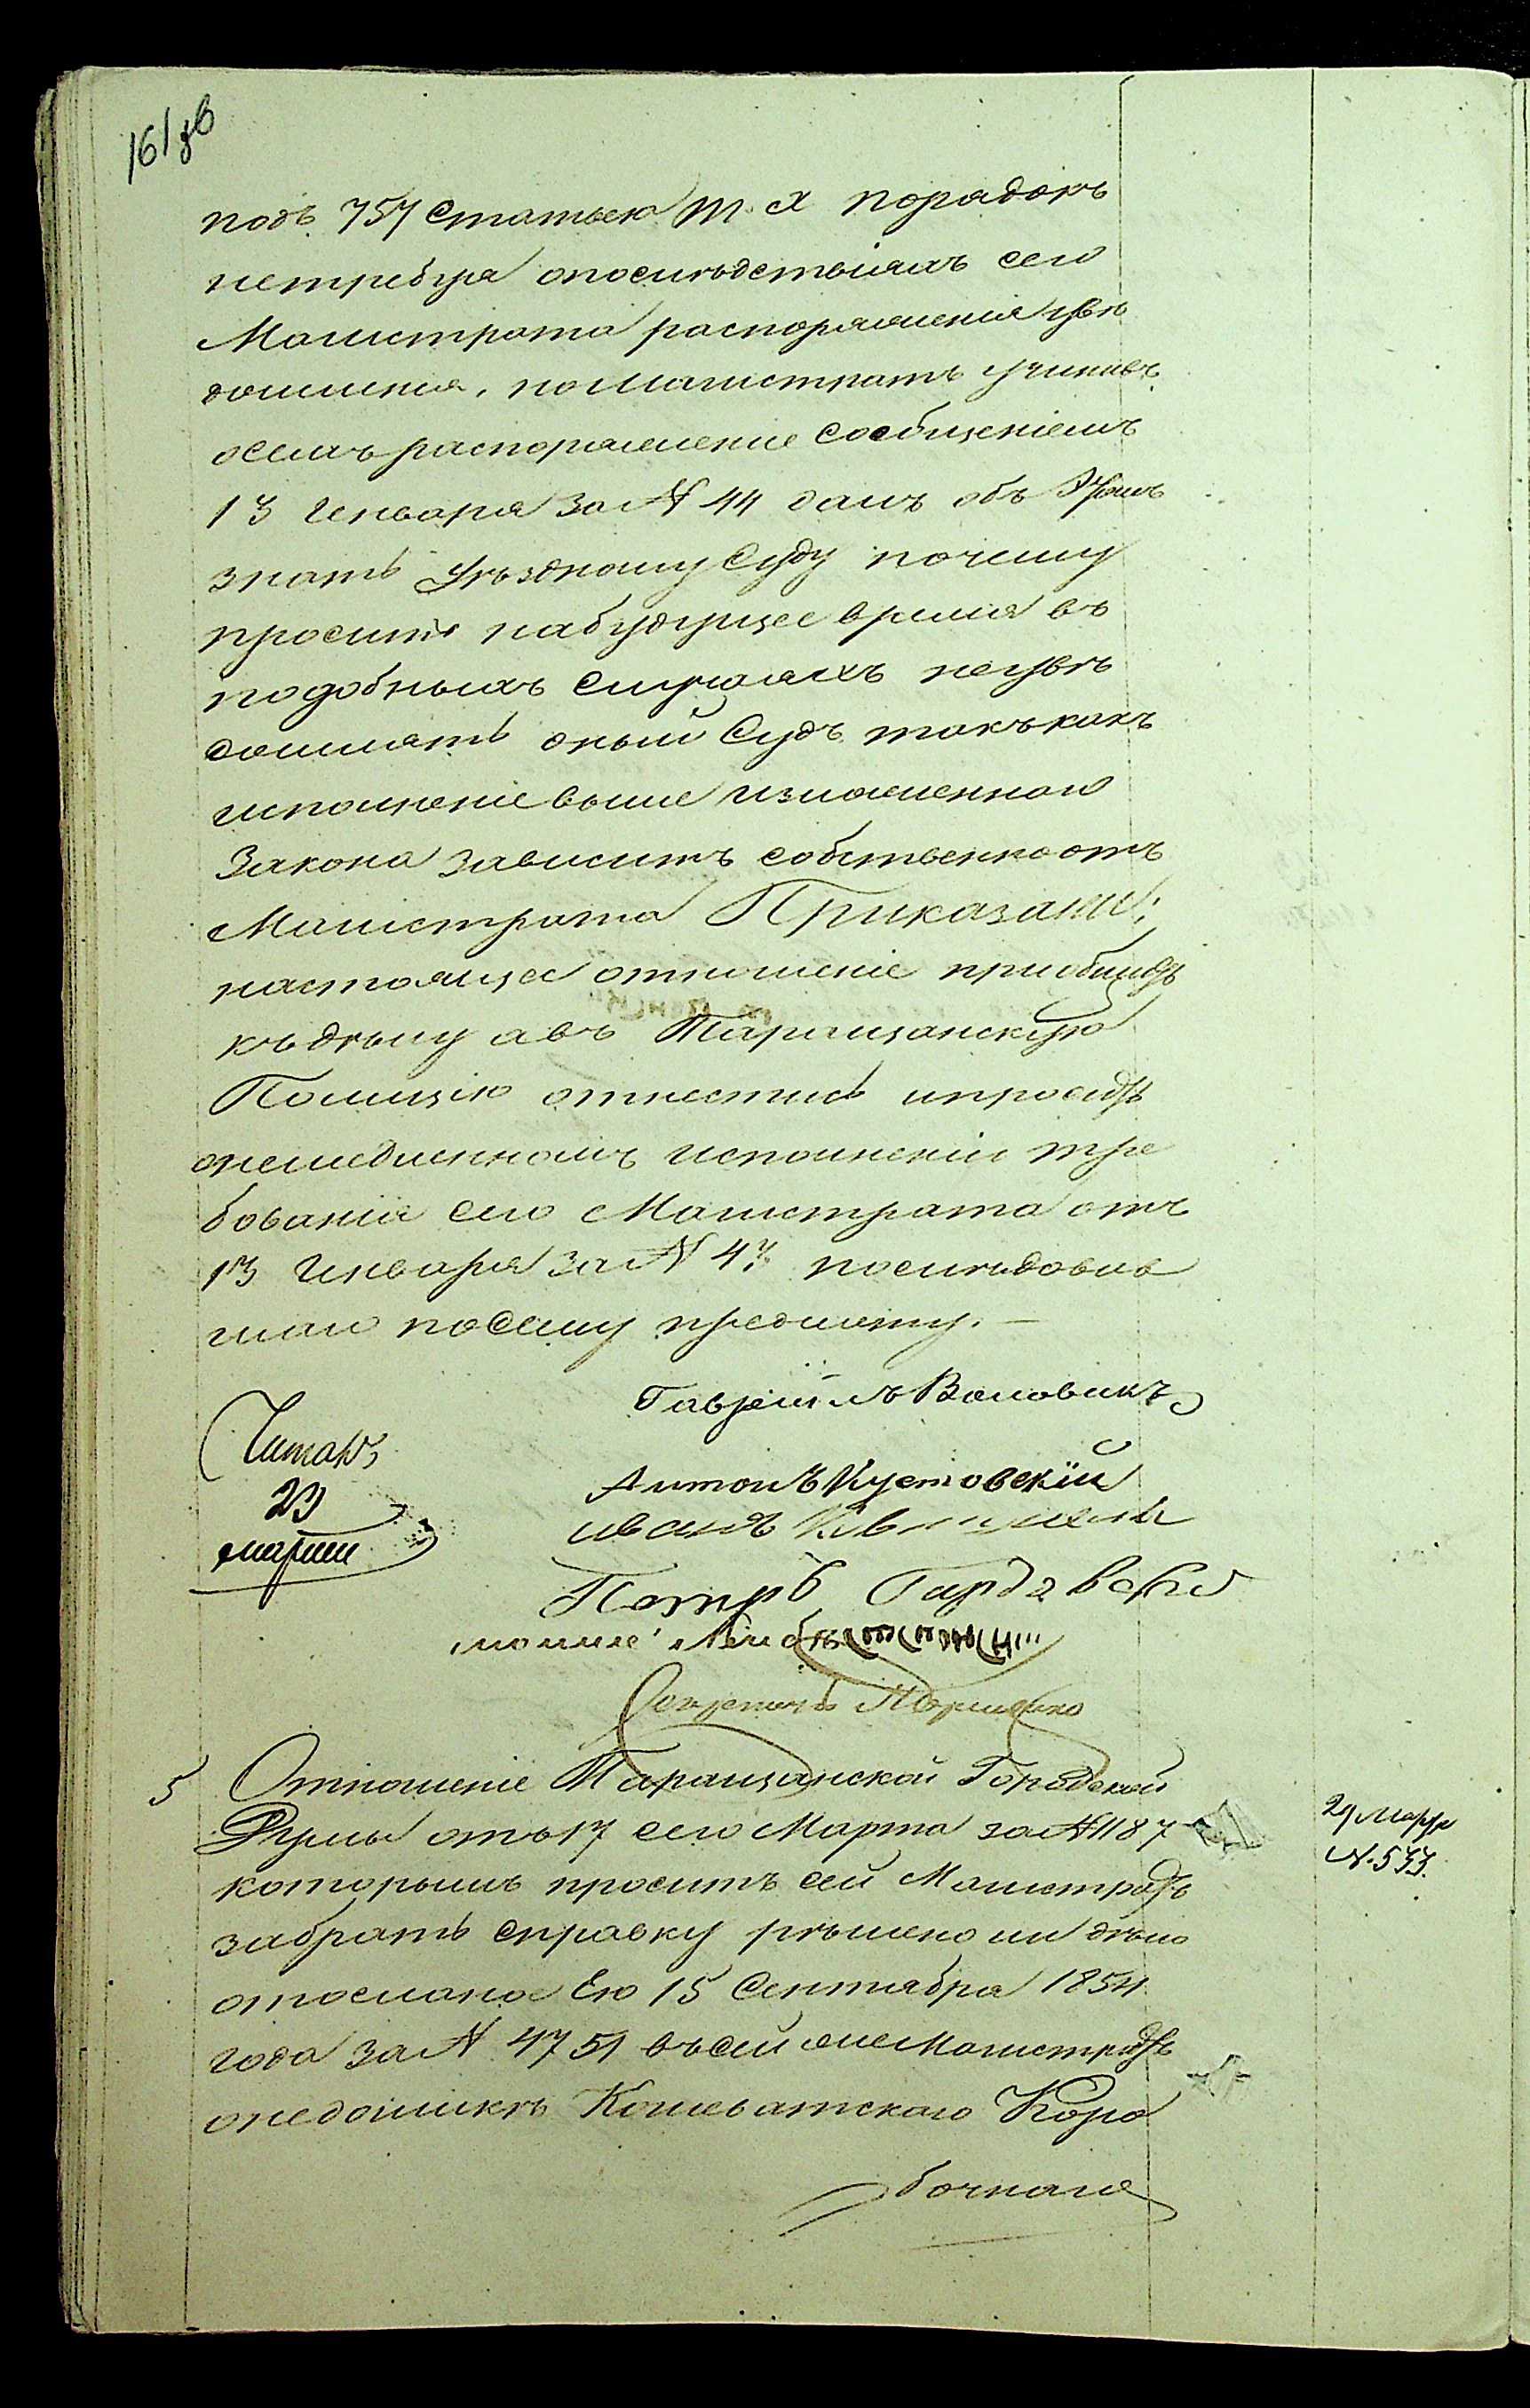 161 зв
подъ 757 статьею т. X порядокъ
нетребуя опослѣдствіяхъ сего
Магистрата распоряженія увѣ
домленія, но Магистратъ учинивъ
осемъ распоряженіе сообщеніемъ
13 Генваря за № 44 далъ объ этомъ
знать Уѣздному Суду почему
проситъ набудущее время въ
подобныхъ случаяхъ неувѣ
домлять оный Судъ такъ какъ
исполненіе выше изложеннаго
Закона зависитъ собственно отъ
Магистрата Приказали:
настоящее отношеніе пріобщить
къ дѣлу а въ Таращанскую
Полицію отнестись и просить
онемедленномъ исполненіи тре
бованія сего Магистрата отъ
13 Генваря за № 43 послѣдовав
шаго посему предмету. —
Гавріилъ Воловикъ
Читалъ
23
марта
Антонъ Кустовскій
иванъ
Петръ
Секретарь
5 Отношеніе Таращанской Городской
Думы отъ 17 сего Марта за № 1187
которымъ проситъ сей Магистратъ
забрать справку рѣшено ли дѣло
отосланое Ею 15 Сентября 1854
года за № 4751 въ сей же Магистратъ
онедоимкѣ Кошеватскаго Коро
бочнаго
29 Марта
№ 533.